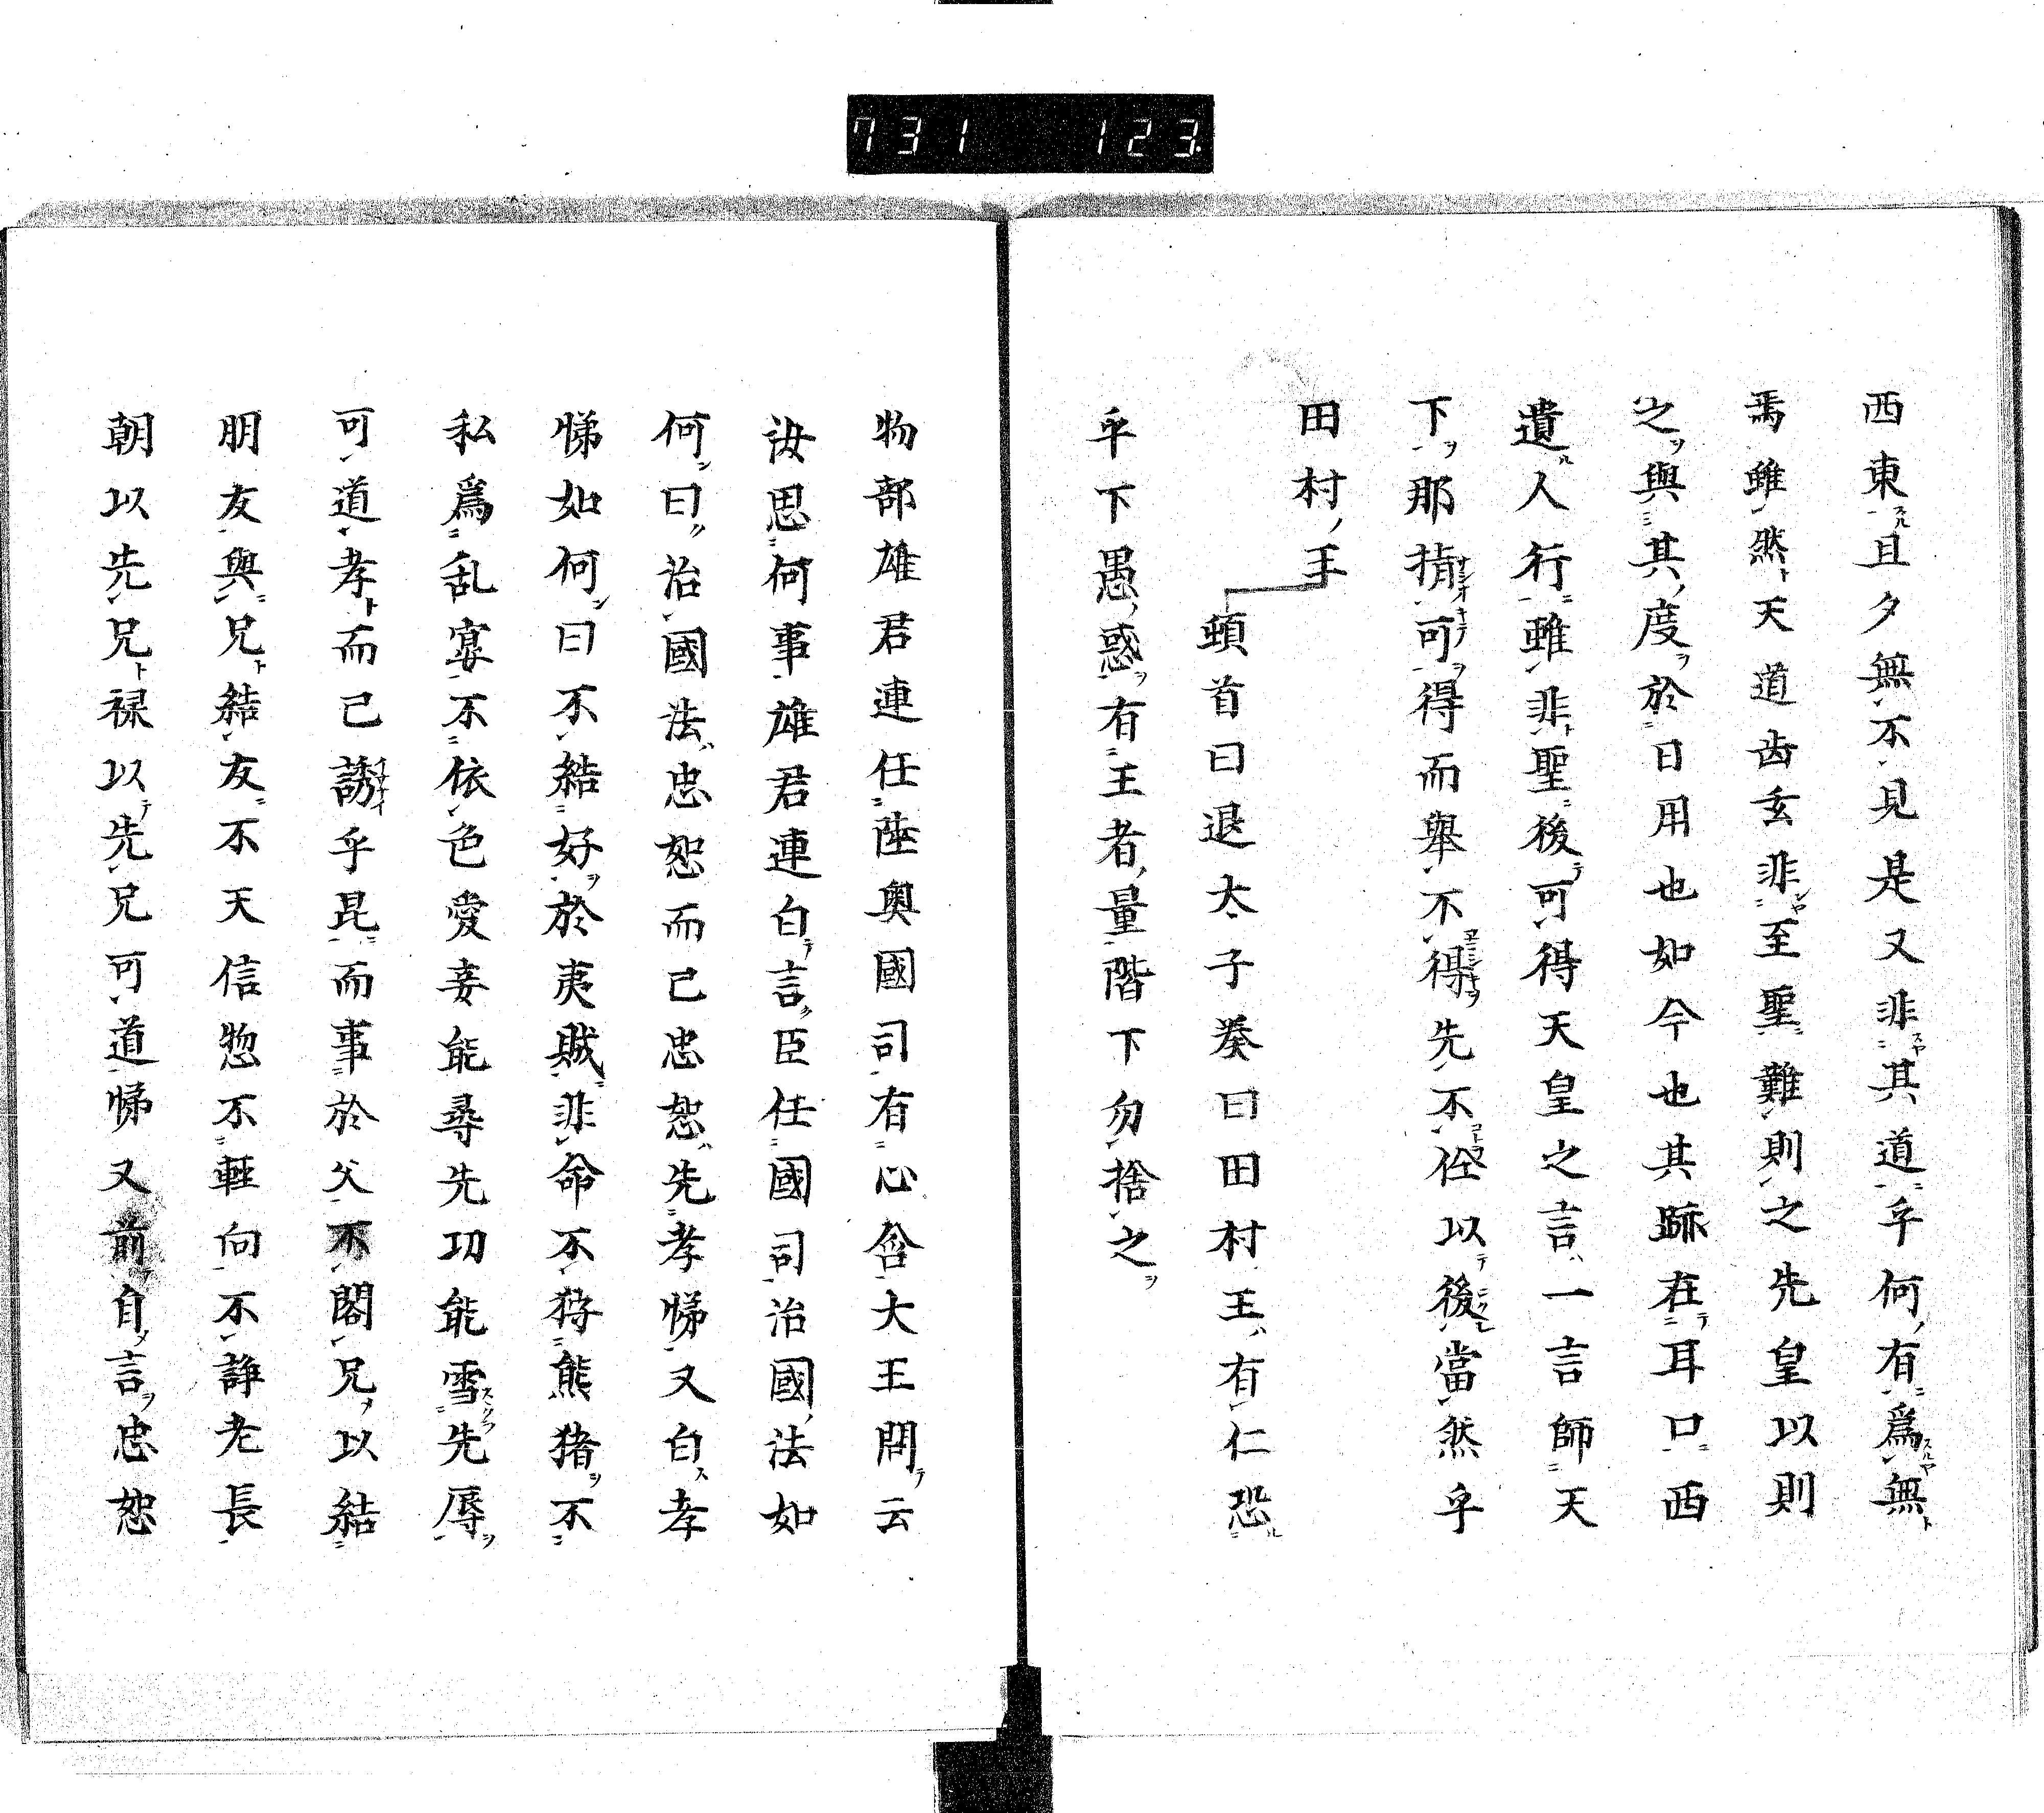 731 123
西東且夕無不見是又非其道乎何有爲無
焉雖然天道齿玄非至聖難則之先皇以則
之與其度於日用也如今也其跡在耳口西
遺人行雖非聖後可得天皇之言一言師天
下那揹可得而舉不得先不俓以後當然乎
田村王
頓首曰退太子奏曰田村王有仁恐
乎下愚惑有王者量階下勿捨之
物部雄君連任陸奥國司有心含大王問云
汝思何事雄君連白言臣任國司治國法如
何曰治國法忠恕而已忠恕先孝悌又白孝
悌如何曰不結好於夷賊非命不狩熊猪不
私爲乱宴不依色愛妾能尋先功能雪先辱
可道孝而已誘乎昆而事於父不閣兄以結
朋友與兄結友不天信惣不軽向不諍老長
朝以先兄禄以先兄可道悌又前自言忠恕